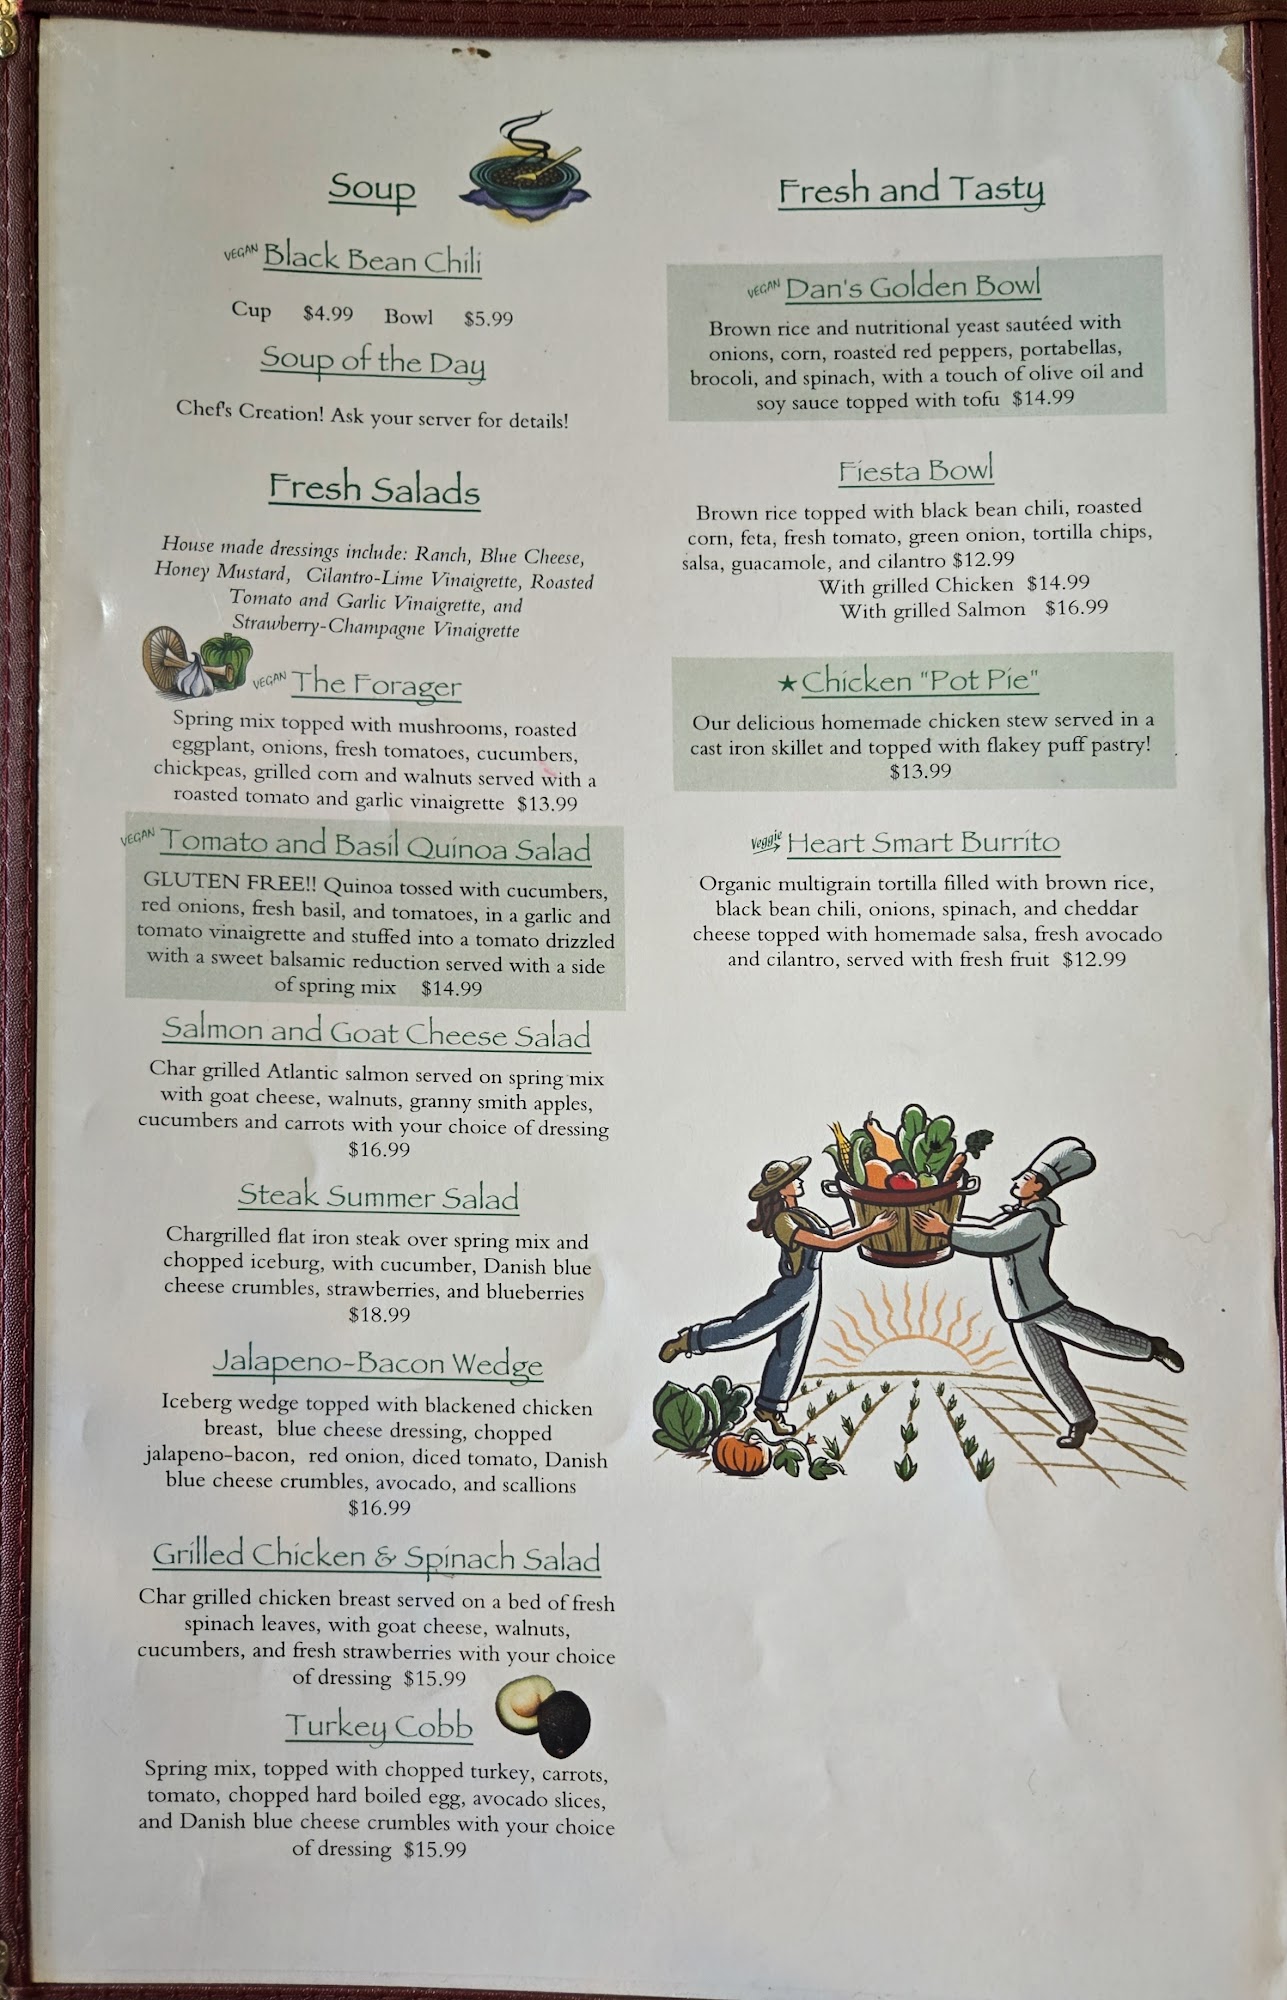 Soup
VEGAN Black Bean Chili
Cup $4.99 Bowl $5.99
Soup of the Day
Chef's Creation! Ask your server for details!
Fresh Salads
House made dressings include: Ranch, Blue Cheese,
Honey Mustard, Cilantro-Lime Vinaigrette, Roasted
Tomato and Garlic Vinaigrette, and
Strawberry-Champagne Vinaigrette
VEGAN The Forager
Spring mix topped with mushrooms, roasted
eggplant, onions, fresh tomatoes, cucumbers,
chickpeas, grilled corn and walnuts served with a
roasted tomato and garlic vinaigrette $13.99
VEGAN Tomato and Basil Quinoa Salad
GLUTEN FREE!! Quinoa tossed with cucumbers,
red onions, fresh basil, and tomatoes, in a garlic and
tomato vinaigrette and stuffed into a tomato drizzled
with a sweet balsamic reduction served with a side
of spring mix $14.99
Salmon and Goat Cheese Salad
Char grilled Atlantic salmon served on spring mix
with goat cheese, walnuts, granny smith apples,
cucumbers and carrots with your choice of dressing
$16.99
Steak Summer Salad
Chargrilled flat iron steak over spring mix and
chopped iceburg, with cucumber, Danish blue
cheese crumbles, strawberries, and blueberries
$18.99
Jalapeno-Bacon Wedge
Iceberg wedge topped with blackened chicken
breast, blue cheese dressing, chopped
jalapeno-bacon, red onion, diced tomato, Danish
blue cheese crumbles, avocado, and scallions
$16.99
Grilled Chicken & Spinach Salad
Char grilled chicken breast served on a bed of fresh
spinach leaves, with goat cheese, walnuts,
cucumbers, and fresh strawberries with your choice
of dressing $15.99
Turkey Cobb
Spring mix, topped with chopped turkey, carrots,
tomato, chopped hard boiled egg, avocado slices,
and Danish blue cheese crumbles with your choice
of dressing $15.99
Fresh and Tasty
VEGAN Dan's Golden Bowl
Brown rice and nutritional yeast sautéed with
onions, corn, roasted red peppers, portabellas,
brocoli, and spinach, with a touch of olive oil and
soy sauce topped with tofu $14.99
Fiesta Bowl
Brown rice topped with black bean chili, roasted
corn, feta, fresh tomato, green onion, tortilla chips,
salsa, guacamole, and cilantro $12.99
With grilled Chicken $14.99
With grilled Salmon $16.99
★ Chicken "Pot Pie"
Our delicious homemade chicken stew served in a
cast iron skillet and topped with flakey puff pastry!
$13.99
Veggie Heart Smart Burrito
Organic multigrain tortilla filled with brown rice,
black bean chili, onions, spinach, and cheddar
cheese topped with homemade salsa, fresh avocado
and cilantro, served with fresh fruit $12.99